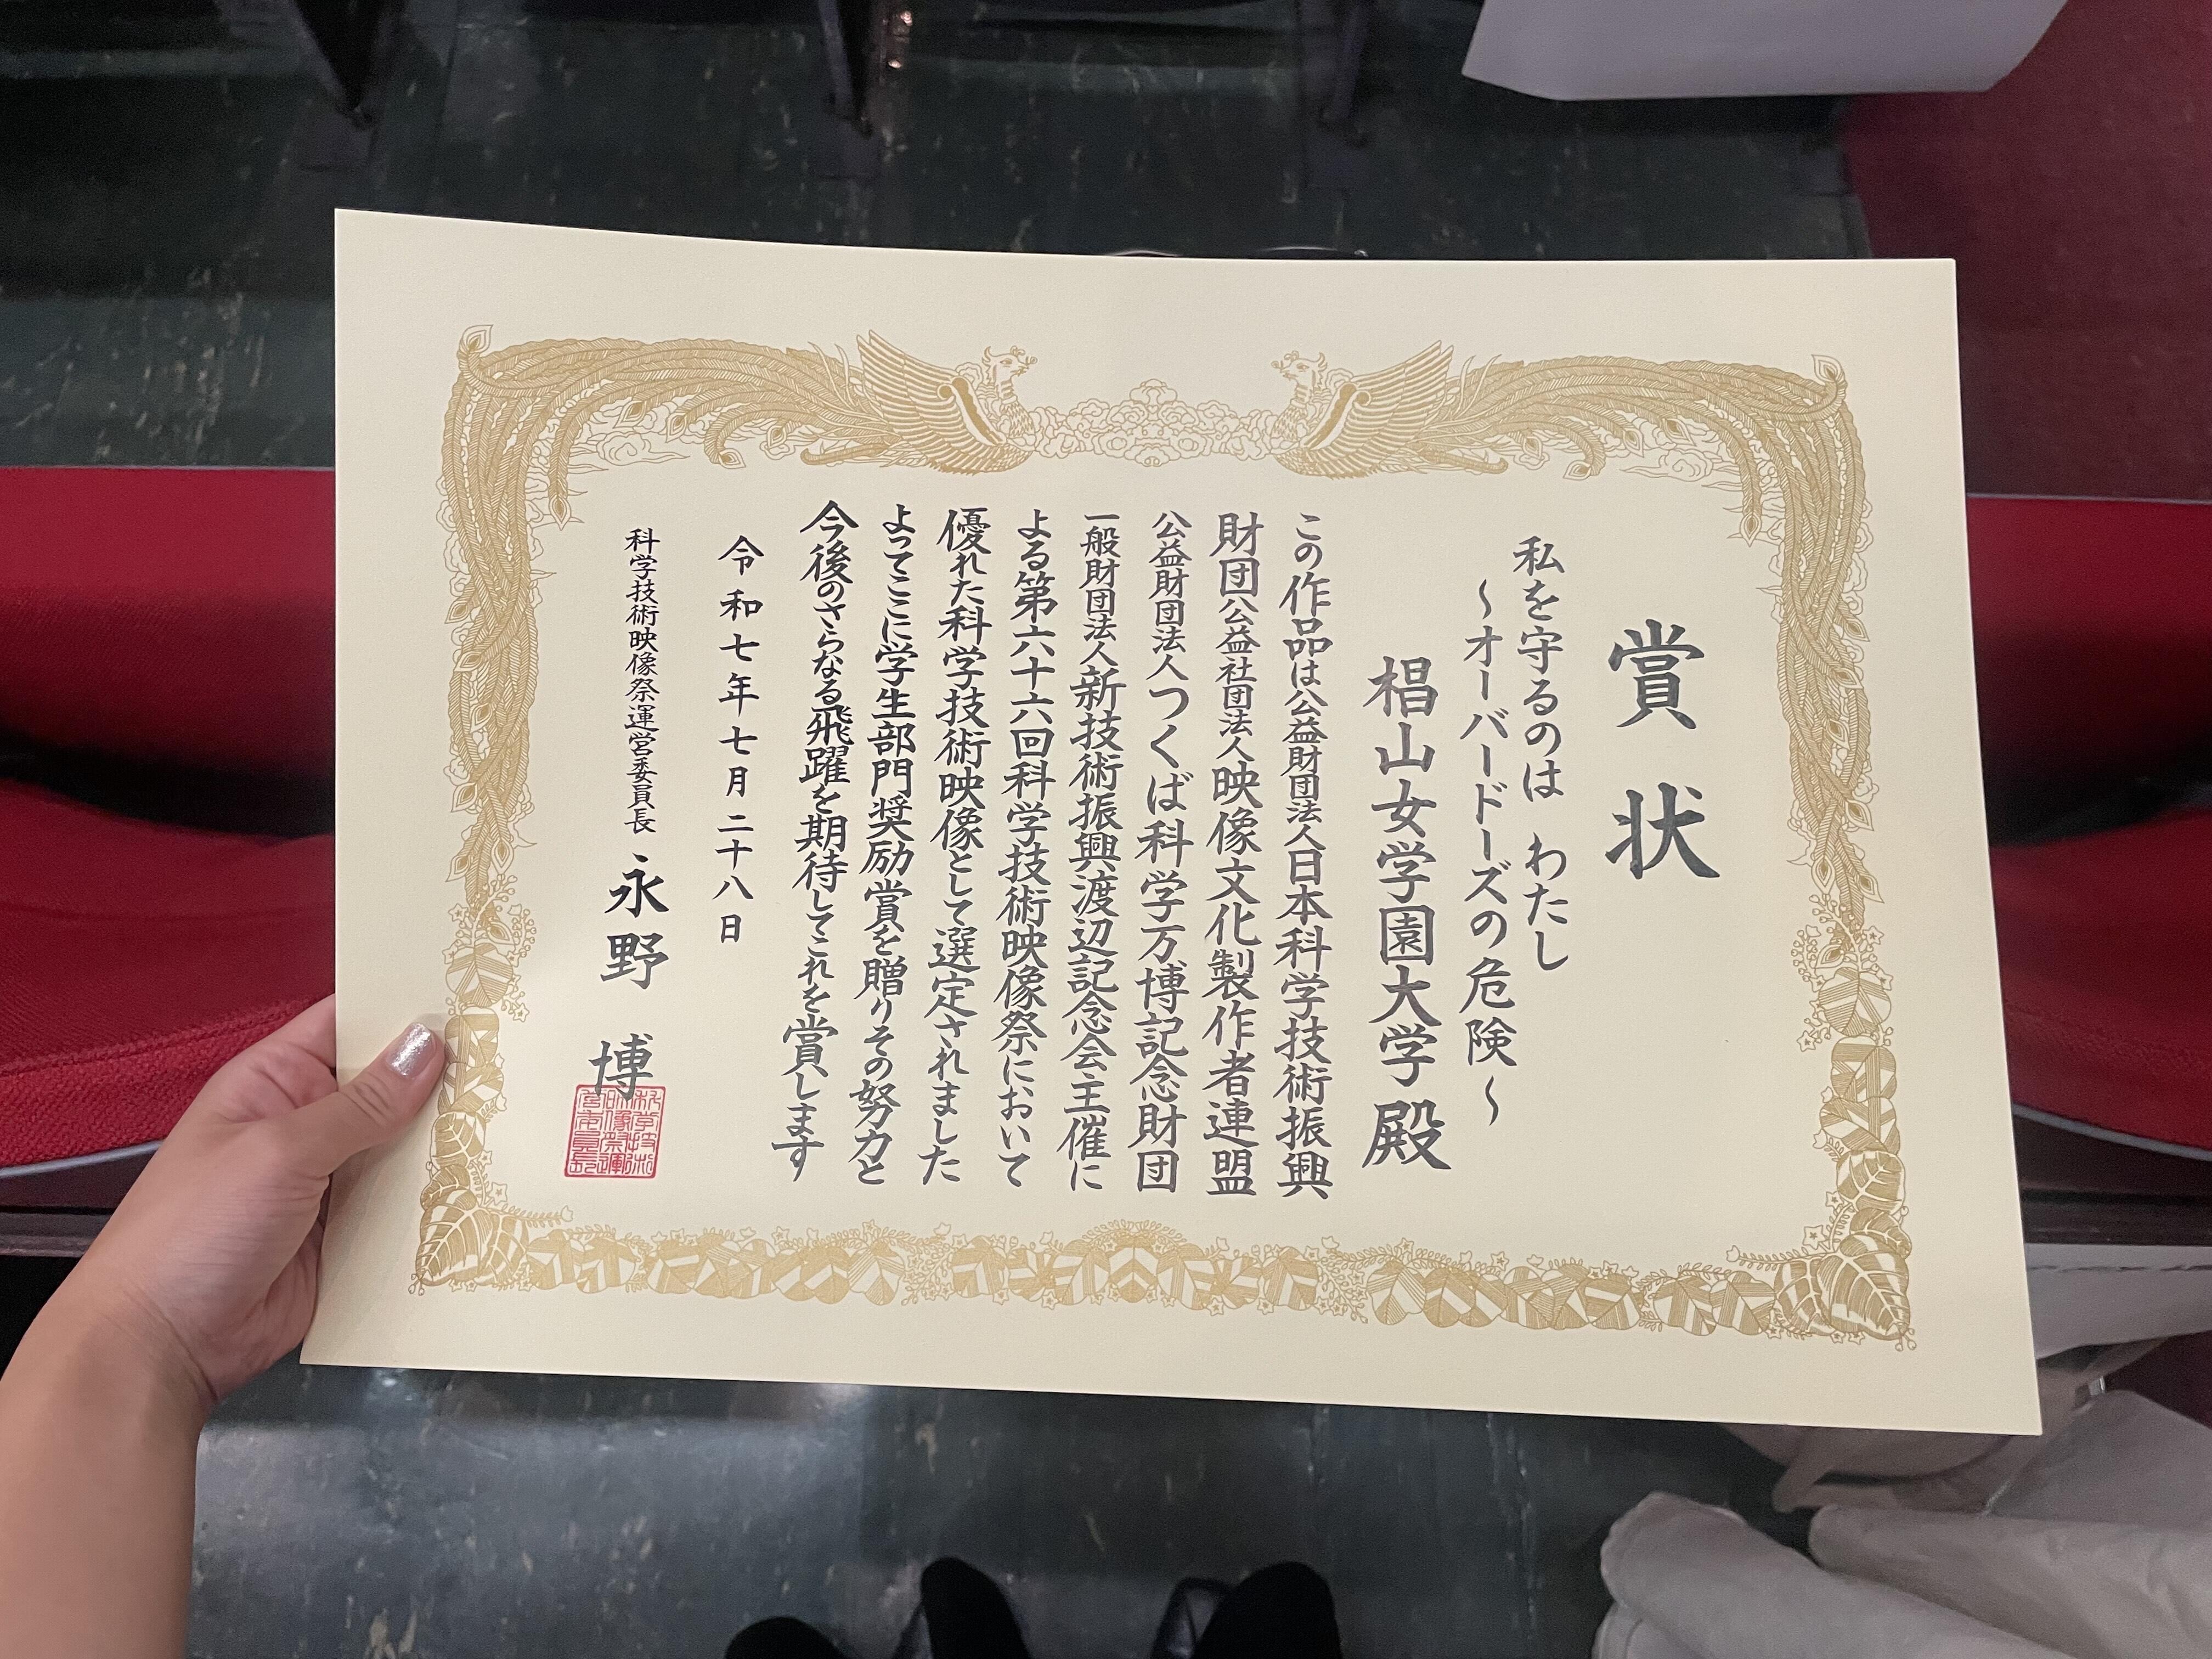 賞状
私を守るのは わたし
～オーバードーズの危険～
椙山女学園大学 殿
この作品は公益財団法人日本科学技術振興
財団公益社団法人映像文化製作者連盟
公益財団法人つくば科学万博記念財団
一般財団法人新技術振興渡辺記念会主催に
よる第六十六回科学技術映像祭において
優れた科学技術映像として選定されました
よってここに学生部門奨励賞を贈りその努力と
今後のさらなる飛躍を期待してこれを賞します
令和七年七月二十八日
科学技術映像祭運営委員長 永野 博